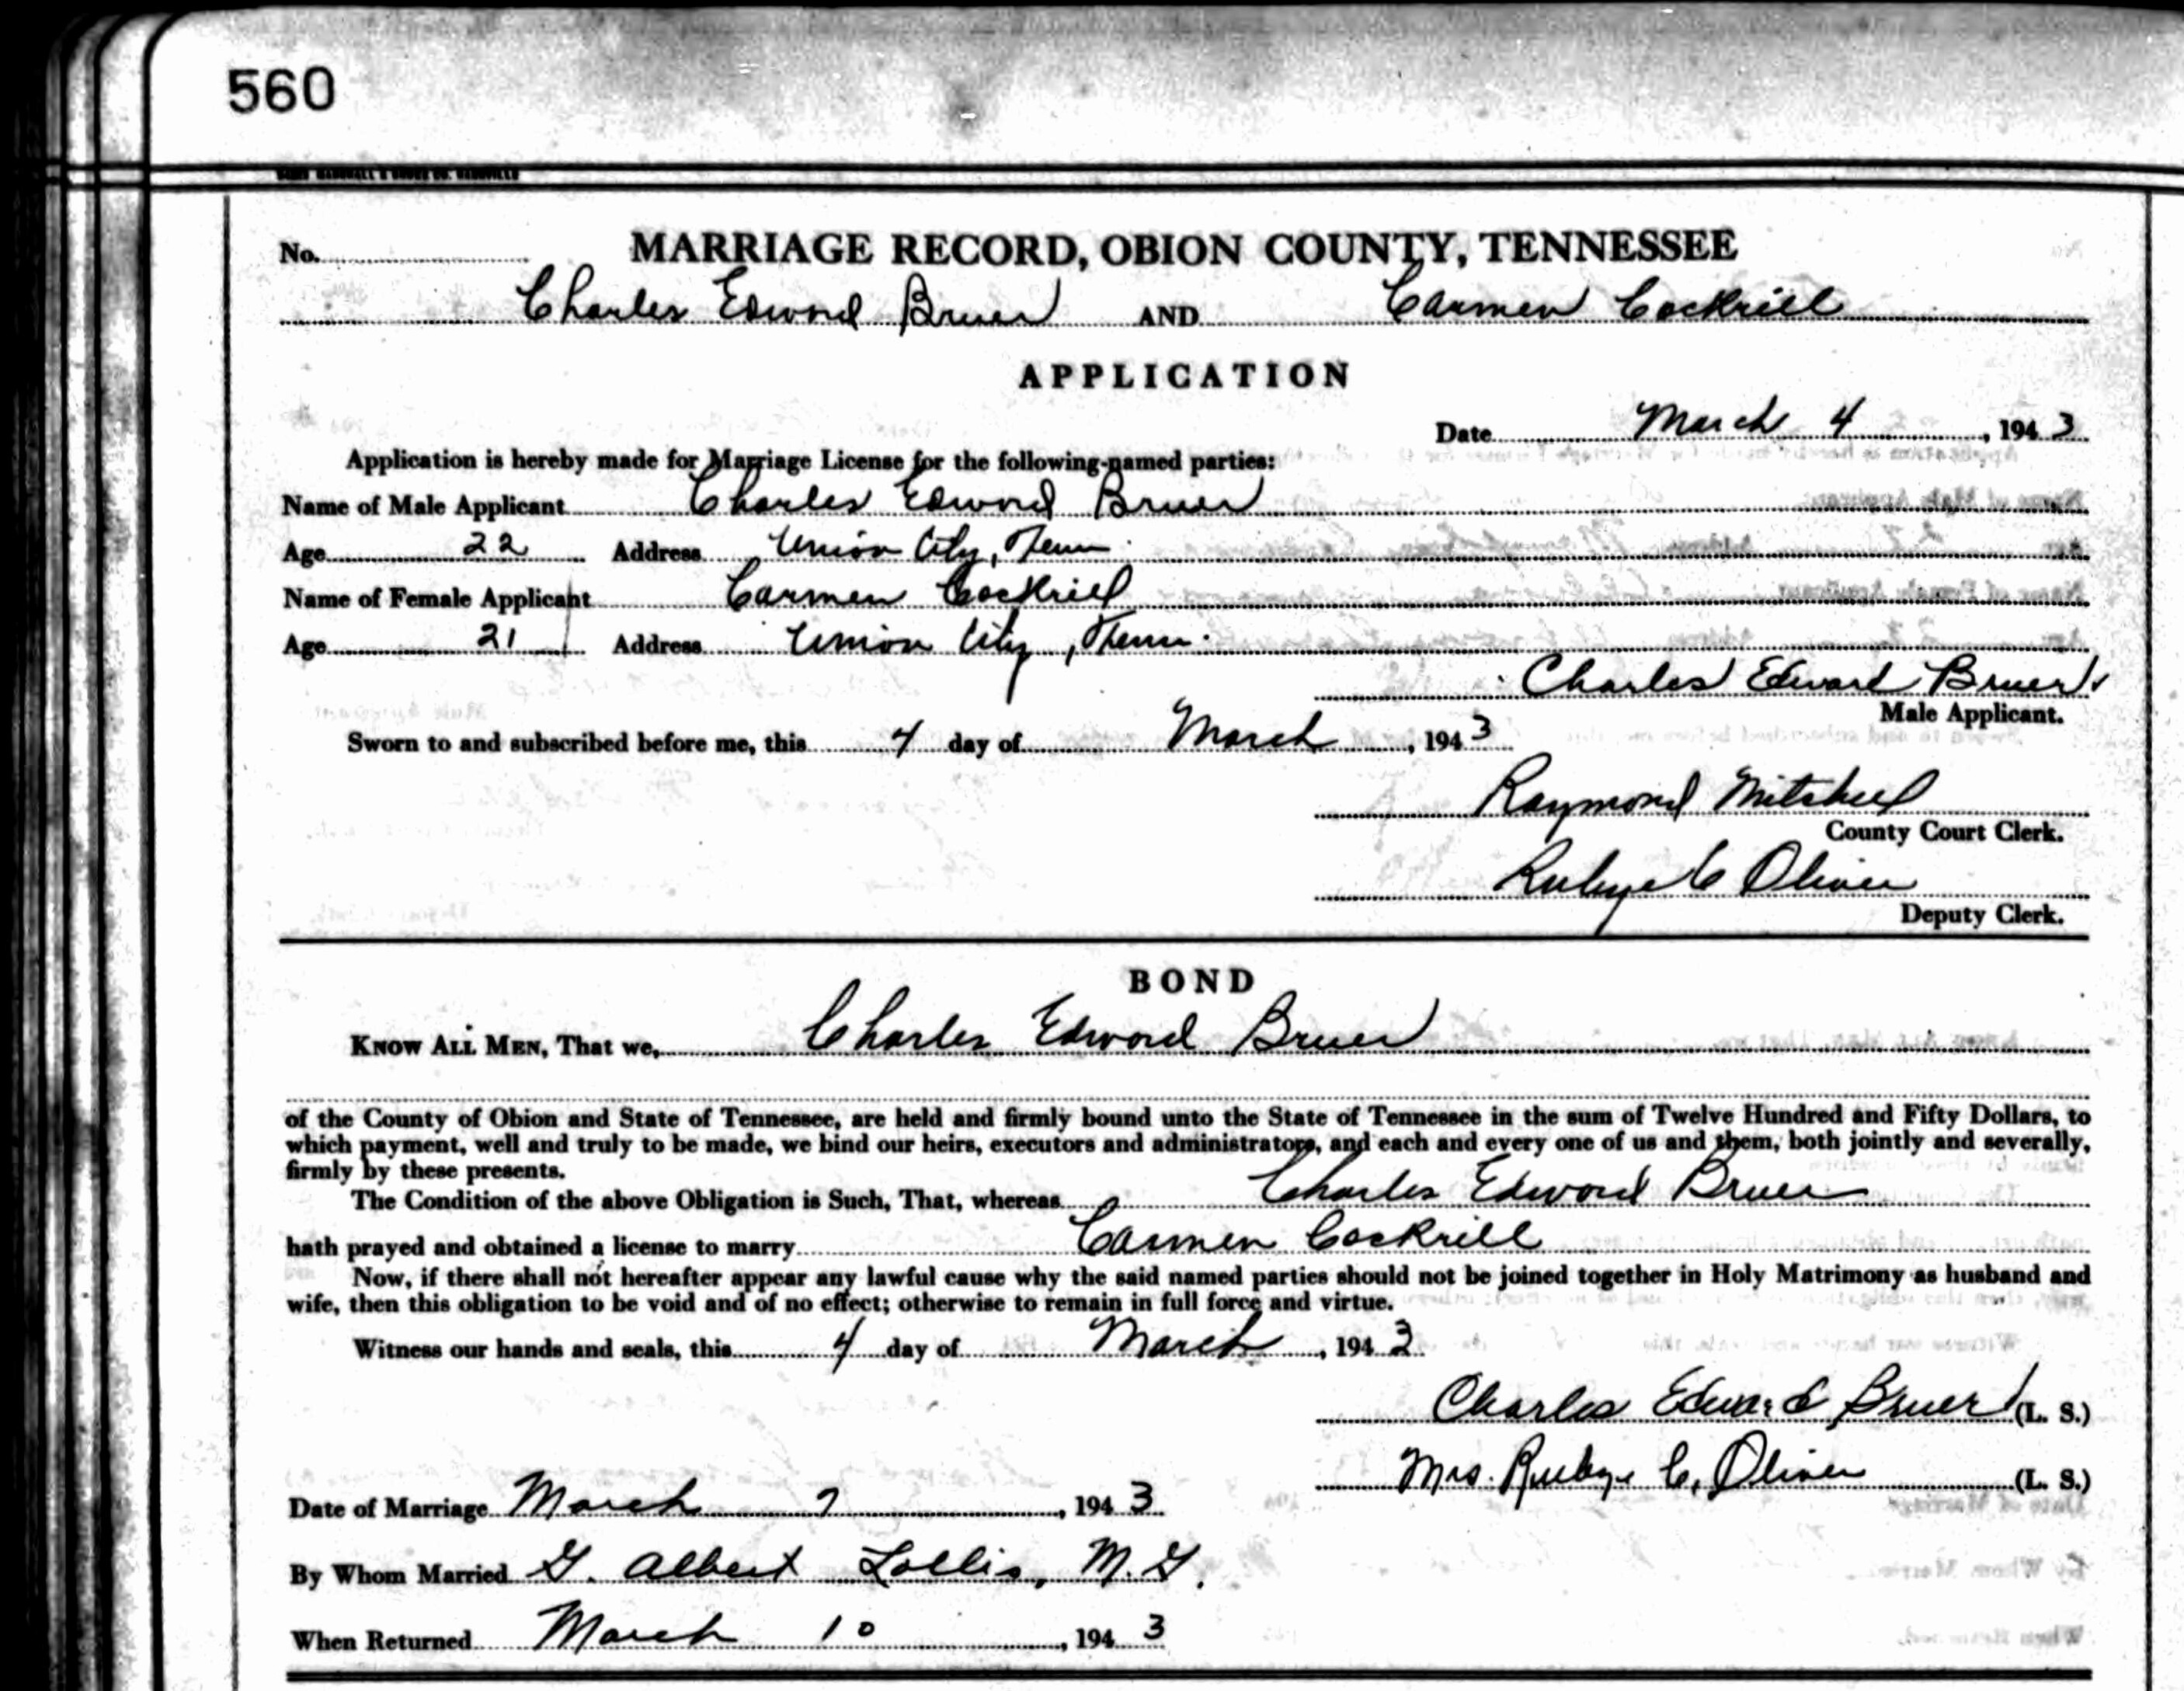 560
MARRIAGE RECORD, OBION COUNTY, TENNESSEE
No.
Charles Edward Bruer AND Carmen Cockrill
APPLICATION
Date March 4, 1943
Application is hereby made for Marriage License for the following-named parties:
Name of Male Applicant Charles Edward Bruer
Age 22 Address Union City, Tenn.
Name of Female Applicant Carmen Cockrill
Age 21 Address Union City, Tenn.
Charles Edward Bruer
Male Applicant.
Sworn to and subscribed before me, this 4 day of March, 1943
Raymond Mitchell
County Court Clerk.
Rubye C Oliver
Deputy Clerk.
BOND
KNOW ALL MEN, That we, Charles Edward Bruer
of the County of Obion and State of Tennessee, are held and firmly bound unto the State of Tennessee in the sum of Twelve Hundred and Fifty Dollars, to
which payment, well and truly to be made, we bind our heirs, executors and administrators, and each and every one of us and them, both jointly and severally,
firmly by these presents.
The Condition of the above Obligation is Such, That, whereas Charles Edward Bruer
hath prayed and obtained a license to marry Carmen Cockrill
Now, if there shall not hereafter appear any lawful cause why the said named parties should not be joined together in Holy Matrimony as husband and
wife, then this obligation to be void and of no effect; otherwise to remain in full force and virtue.
Witness our hands and seals, this 4 day of March, 1943
Charles Edward Bruer (L. S.)
Mrs. Rubye C. Oliver (L. S.)
Date of Marriage March 7, 1943
By Whom Married G. Albert Lollis, M.G.
When Returned March 10, 1943